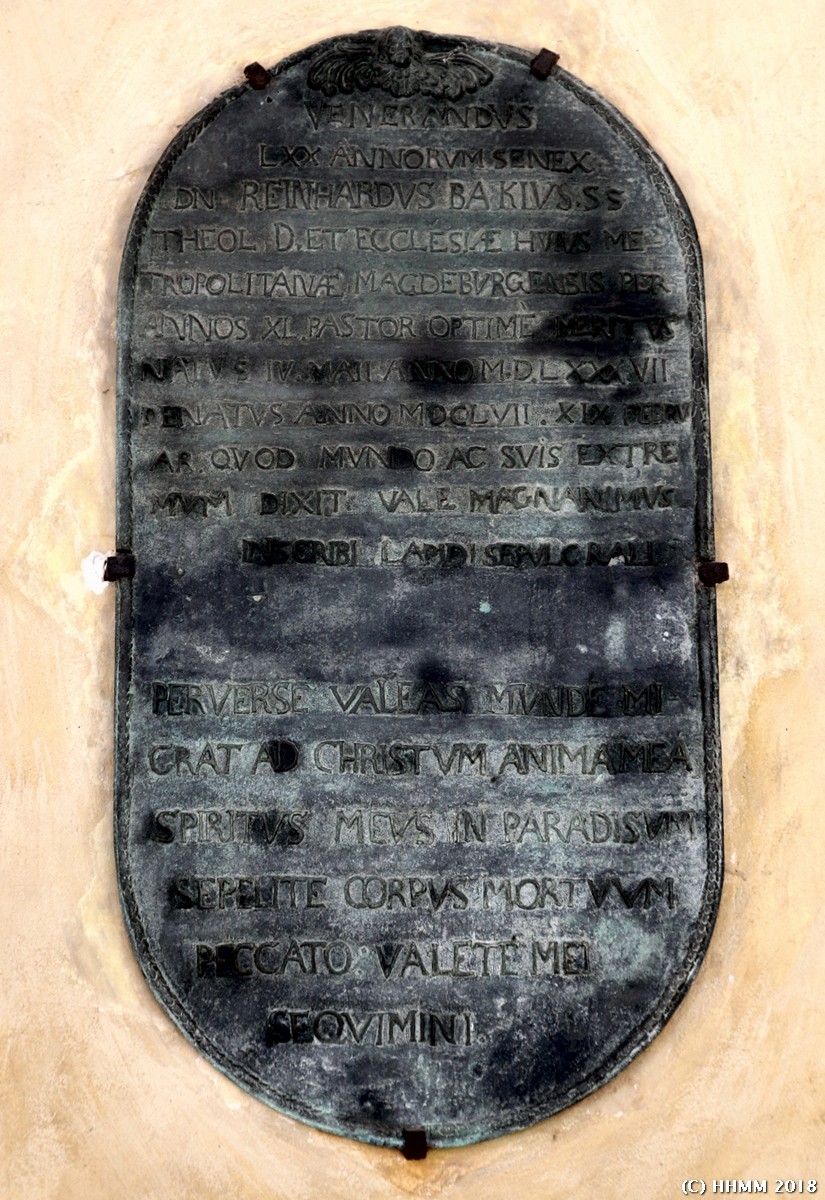 VENERANDVS
LXX ANNORVM SENEX
DN REINHARDVS BAKIVS.SS
THEOL. D. ET ECCLESIÆ HVIVS ME-
TROPOLITANÆ MAGDEBVRGENSIS PER
ANNOS XL. PASTOR OPTIMÈ MERITVS
NATVS IV. MAII ANNO M.D.LXXXVII
DENATVS ANNO MDCLVII. XIX FEBRV
AR. QVOD MVNDO AC SVIS EXTRE
MVM DIXIT VALE MAGNANIMVS
INSCRIBI LAPIDI SEPVLCRALI
PERVERSE VALEAS MVNDE MI-
GRAT AD CHRISTVM ANIMA MEA
SPIRITVS MEVS IN PARADISVM
SEPELITE CORPVS MORTVVM
PECCATO: VALETE MEI
SEQVIMINI.
(C) HHMM 2018